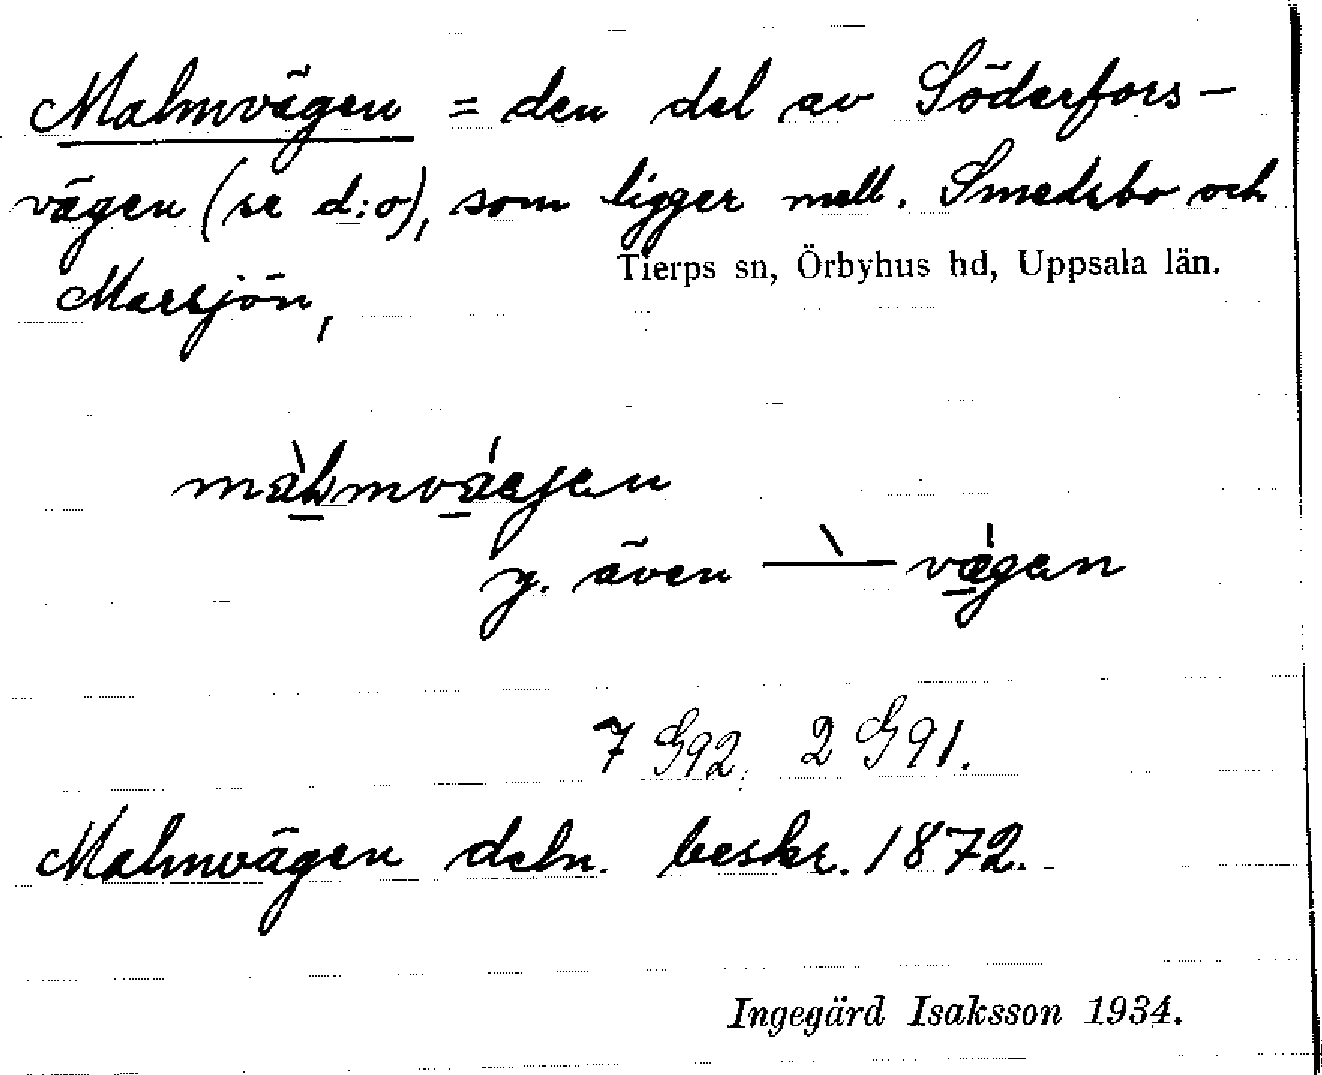 Malmvägen = den del av Söderfors-
vägen (se d:o), som ligger mell. Smedsbo och
Tierps sn, Örbyhus hd, Uppsala län.
Marsjön,
y. även — vægan
7 G92, 2 G91.
Malmvägen beskr. 1872.
Ingegärd Isaksson 1934.